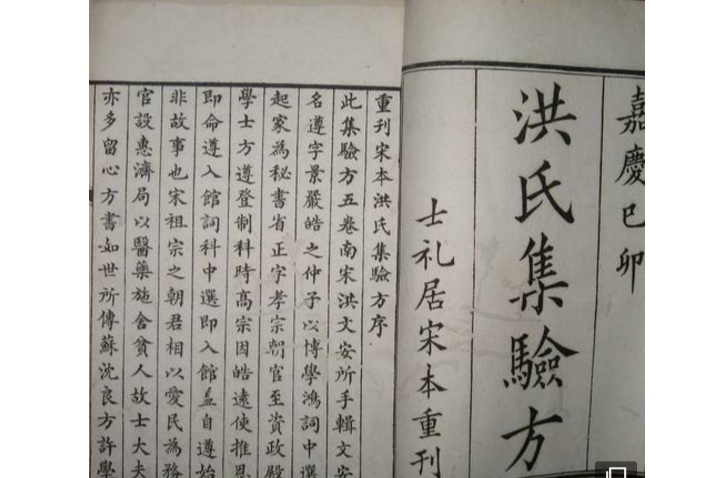 嘉慶己卯
洪氏集驗方
士礼居宋本重刊
重刊宋本洪氏集驗方序
此集驗方五卷南宋洪文安所手輯文安
名遵字景嚴皓之仲子以博學鴻詞中選
起家為秘書省正字孝宗朝官至資政殿
學士方遵登制科時高宗因皓遠使推恩
即命遵入館詞科中選即入館盖自遵始
非故事也宋祖宗之朝君相以愛民為務
官設惠濟局以醫藥施舍貧人故士大夫
亦多留心方書如世所傳蘇沈良方許學